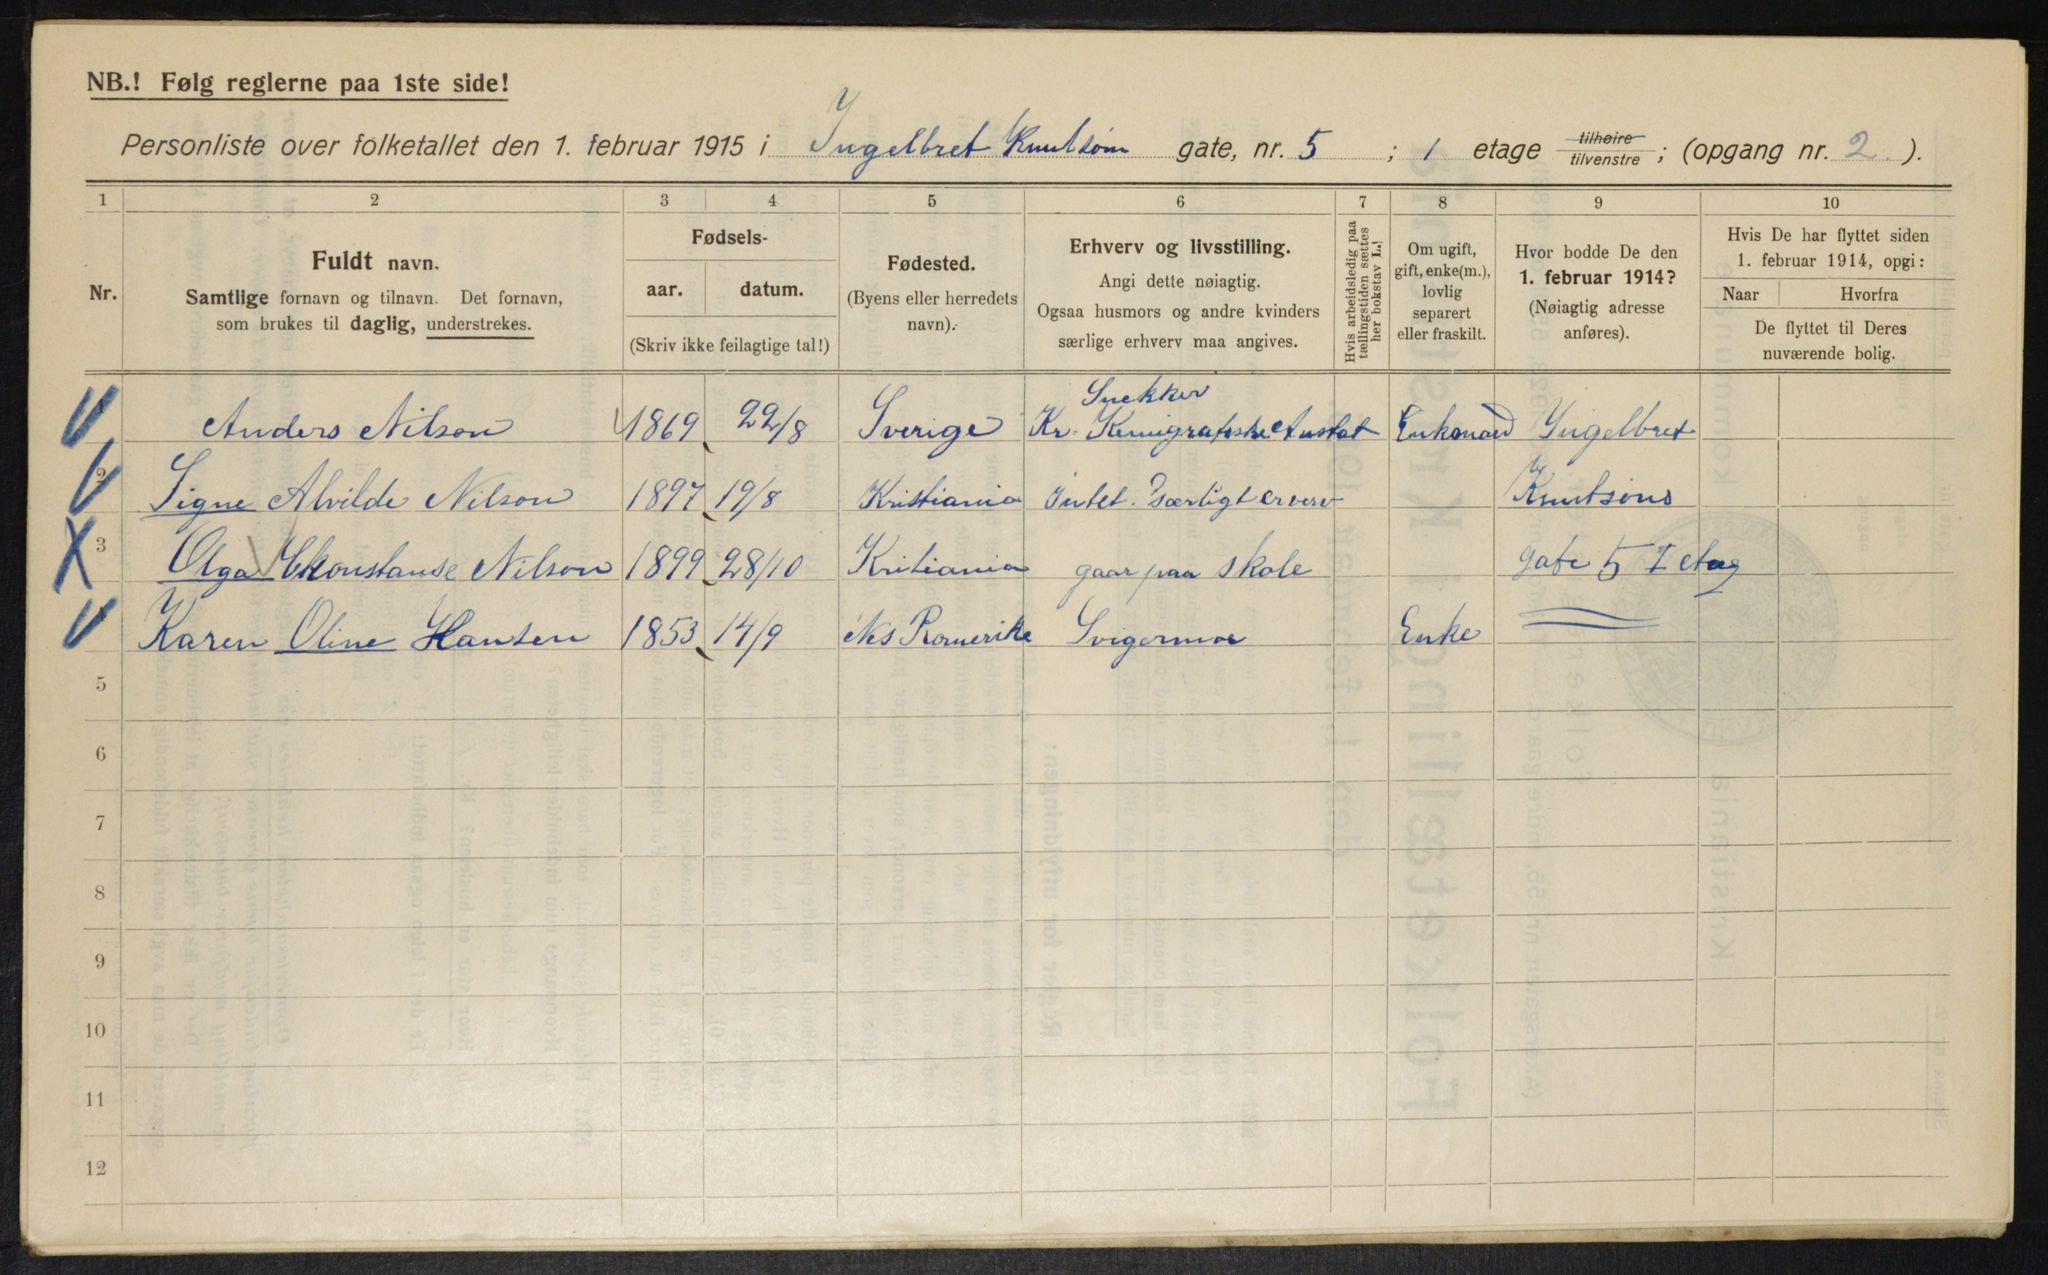 NB.! Følg reglerne paa 1ste side!
Personliste over folketallet den 1. februar 1915 i Ingelbret Knutsøns gate, nr. 5 ; 1 etage tilhøire/tilvenstre; (opgang nr. 2 ).
1 2 3 4 5 6 7 8 9 10
Nr.
Fuldt navn.
Samtlige fornavn og tilnavn. Det fornavn,
som brukes til daglig, understrekes.
Fødsels-
aar. datum.
(Skriv ikke feilagtige tal!)
Fødested.
(Byens eller herredets
navn).
Erhverv og livsstilling.
Angi dette nøiagtig.
Ogsaa husmors og andre kvinders
særlige erhverv maa angives.
Hvis arbeidsledig paa
tællingstiden sættes
her bokstav L.!
Om ugift,
gift, enke(m.),
lovlig
separert
eller fraskilt.
Hvor bodde De den
1. februar 1914?
(Nøiagtig adresse
anføres).
Hvis De har flyttet siden
1. februar 1914, opgi:
Naar Hvorfra
De flyttet til Deres
nuværende bolig.
Snekker
1 Anders Nilson 1869 22/8 Sverige Kr. Kemigrafiske Anstat Enkemand Ingelbret
2 Signe Alvilde Nilson 1897 19/8 Kristiania Intet særligt erverv Knutsøns
3 Olga Konstanse Nilson 1899 28/10 Kritiania gaar paa skole gate 5 I etag
4 Karen Oline Hansen 1853 14/9 Nes Romerike Svigermor Enke
5
6
7
8
9
10
11
12